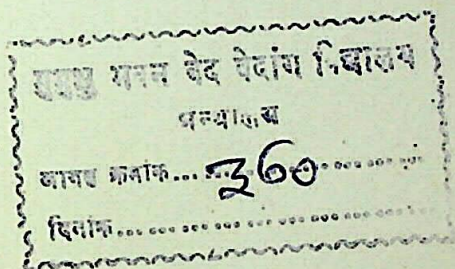 मुमुक्षु भवन वेद वेदांग विद्यालय
ग्रन्थालय
आगत क्रमांक... 360 ...............
दिनांक..............................